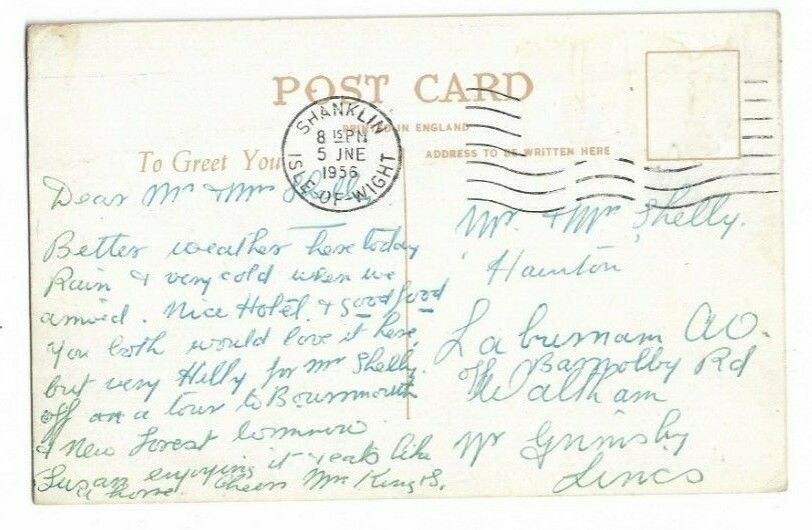 POST CARD
PRINTED IN ENGLAND
To Greet You
ADDRESS TO BE WRITTEN HERE
SHANKLIN
8 15 PM
5 JNE
1956
ISLE-OF-WIGHT
Dear Mr & Mrs Shelly
Better weather here today
Rain & very cold when we
arrived. Nice Hotel & Good food
You both would love it here
but very Hilly for Mr Shelly.
off on a tour to Bournmouth
& New Forest tomorrow
Susan enjoying it & eats like
a horse. Cheers Mrs King & S.
Mr. & Mrs Shelly.
Hainton
Laburnam Av.
Off Barnolby Rd
Waltham
Nr Grimsby
Lincs